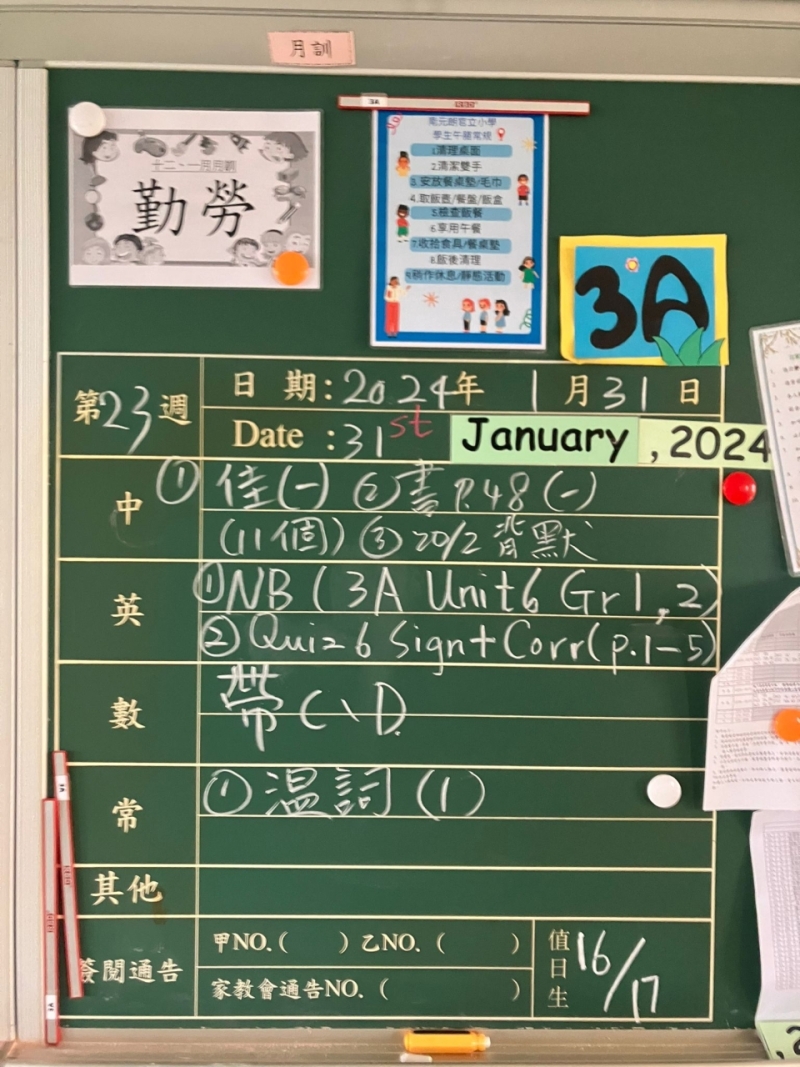 月訓
十二、一月月訓
勤勞
3A
南元朗官立小學
學生午膳常規
1.清理桌面
2.清潔雙手
3.安放餐桌墊/毛巾
4.取飯壺/餐盤/飯盒
5.檢查飯餐
6.享用午餐
7.收拾食具/餐桌墊
8.飯後清理
9.稍作休息/靜態活動
3A
第23週
日期:2024年 1月31日
Date :31st January , 2024
中
① 佳(一) ②書P.48(一)
(11個) ③20/2 背默
英
①NB(3A Unit6 Gr1,2)
②Quiz6 Sign+Corr(p.1-5)
數
帶C、D.
常
①温詞(1)
其他
簽閱通告
甲NO.( ) 乙NO.( )
家教會通告NO.( )
值日生
16/17